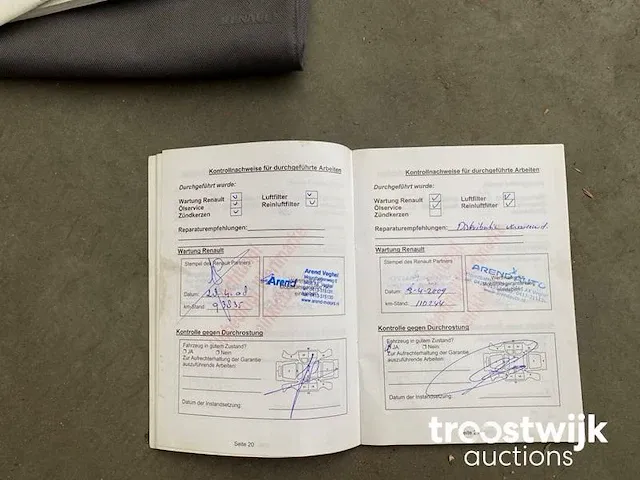 RENAULT
Kontrollnachweise für durchgeführte Arbeiten
Durchgeführt wurde:
Wartung Renault
Ölservice
Zündkerzen
Luftfilter
Reinluftfilter
Reparaturempfehlungen:
Wartung Renault
Stempel des Renault Partners
Datum:
km-Stand:
Arend
Arend Veghel
www.arend-motors.nl
Kontrolle gegen Durchrostung
Fahrzeug in gutem Zustand?
JA Nein
Zur Aufrechterhaltung der Garantie
auszuführende Arbeiten:
Datum der Instandsetzung:
Seite 20
Kontrollnachweise für durchgeführte Arbeiten
Durchgeführt wurde:
Wartung Renault
Ölservice
Zündkerzen
Luftfilter
Reinluftfilter
Reparaturempfehlungen: Distributie
Wartung Renault
Stempel des Renault Partners
Datum: 8-4-2009
km-Stand: 110244
AREND AUTO
Kontrolle gegen Durchrostung
Fahrzeug in gutem Zustand?
JA Nein
Zur Aufrechterhaltung der Garantie
auszuführende Arbeiten:
Datum der Instandsetzung:
Seite
troostwijk
auctions